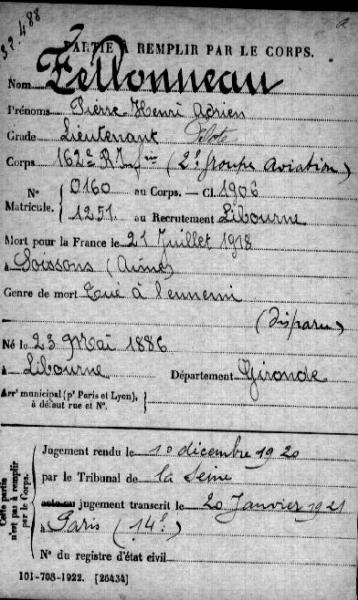 37.488
PARTIE À REMPLIR PAR LE CORPS.
Nom Fellonneau
Prénoms Pierre Henri Adrien
Grade Lieutenant Pilote
Corps 162e R.I. (2e Groupe Aviation)
N° 0160 au Corps. — Cl. 1906
Matricule. 1251. au Recrutement Libourne
Mort pour la France le 21 Juillet 1918
à Soissons (Aisne)
Genre de mort Tué à l'ennemi
(Disparu)
Né le 23 Mai 1886
à Libourne Département Gironde
Arrt municipal (pr Paris et Lyon),
à défaut rue et N°.
Cette partie
n'est pas à remplir
par le Corps.
Jugement rendu le 10 décembre 1920
par le Tribunal de la Seine
acte ou jugement transcrit le 20 Janvier 1921
à Paris (14e)
N° du registre d'état civil
101-708-1922. [26434]